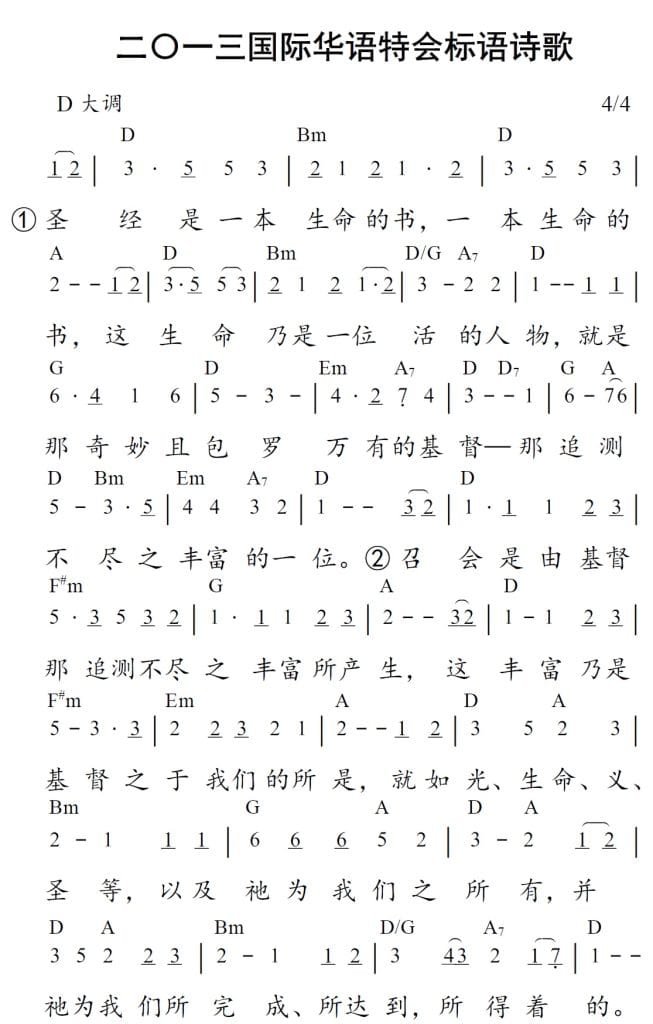 二〇一三国际华语特会标语诗歌
D 大调 4/4
D Bm D
1 2 | 3 · 5 5 3 | 2 1 2 1 · 2 | 3 · 5 5 3 |
① 圣 经 是 一 本 生命 的 书, 一 本 生 命 的
A D Bm D/G A7 D
2 - - 1 2 | 3 · 5 5 3 | 2 1 2 1 · 2 | 3 - 2 2 | 1 - - 1 1 |
书, 这 生 命 乃是 一位 活 的人 物, 就是
G D Em A7 D D7 G A
6 · 4 1 6 | 5 - 3 - | 4 · 2 7 4 | 3 - - 1 | 6 - 7 6 |
那 奇 妙 且 包 罗 万 有 的 基 督—那 追 测
D Bm Em A7 D D
5 - 3 · 5 | 4 4 3 2 | 1 - - 3 2 | 1 · 1 1 2 3 |
不 尽 之 丰富 的 一 位。② 召 会 是 由 基督
F#m G A D
5 · 3 5 3 2 | 1 · 1 1 2 3 | 2 - - 3 2 | 1 - 1 2 3 |
那 追测不尽 之 丰富 所产 生, 这 丰 富 乃是
F#m Em A D A
5 - 3 · 3 | 2 2 3 2 1 | 2 - - 1 2 | 3 5 2 3 |
基 督 之 于 我们 的 所 是, 就 如 光、生命、义、
Bm G A D A
2 - 1 1 1 | 6 6 6 5 2 | 3 - 2 1 2 |
圣 等, 以 及 祂 为 我 们 之 所 有, 并
D A Bm D/G A7 D
3 5 2 2 3 | 2 - 1 1 2 | 3 4 3 2 1 7 | 1 - -
祂为我 们所 完 成、所达 到, 所 得 着 的。